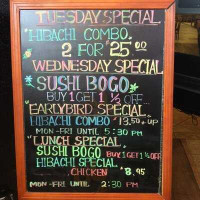 TUESDAY SPECIAL
HIBACHI COMBO
2 FOR $25.00
WEDNESDAY SPECIAL
SUSHI BOGO
BUY 1 GET 1 ½ OFF
"EARLYBIRD SPECIAL
HIBACHI COMBO $13.50 + UP
MON-FRI UNTIL 5:30 PM
"LUNCH SPECIAL"
SUSHI BOGO BUY 1 GET 1 ½ OFF
HIBACHI SPECIAL
CHICKEN $8.95
MON-FRI UNTIL 2:30 PM